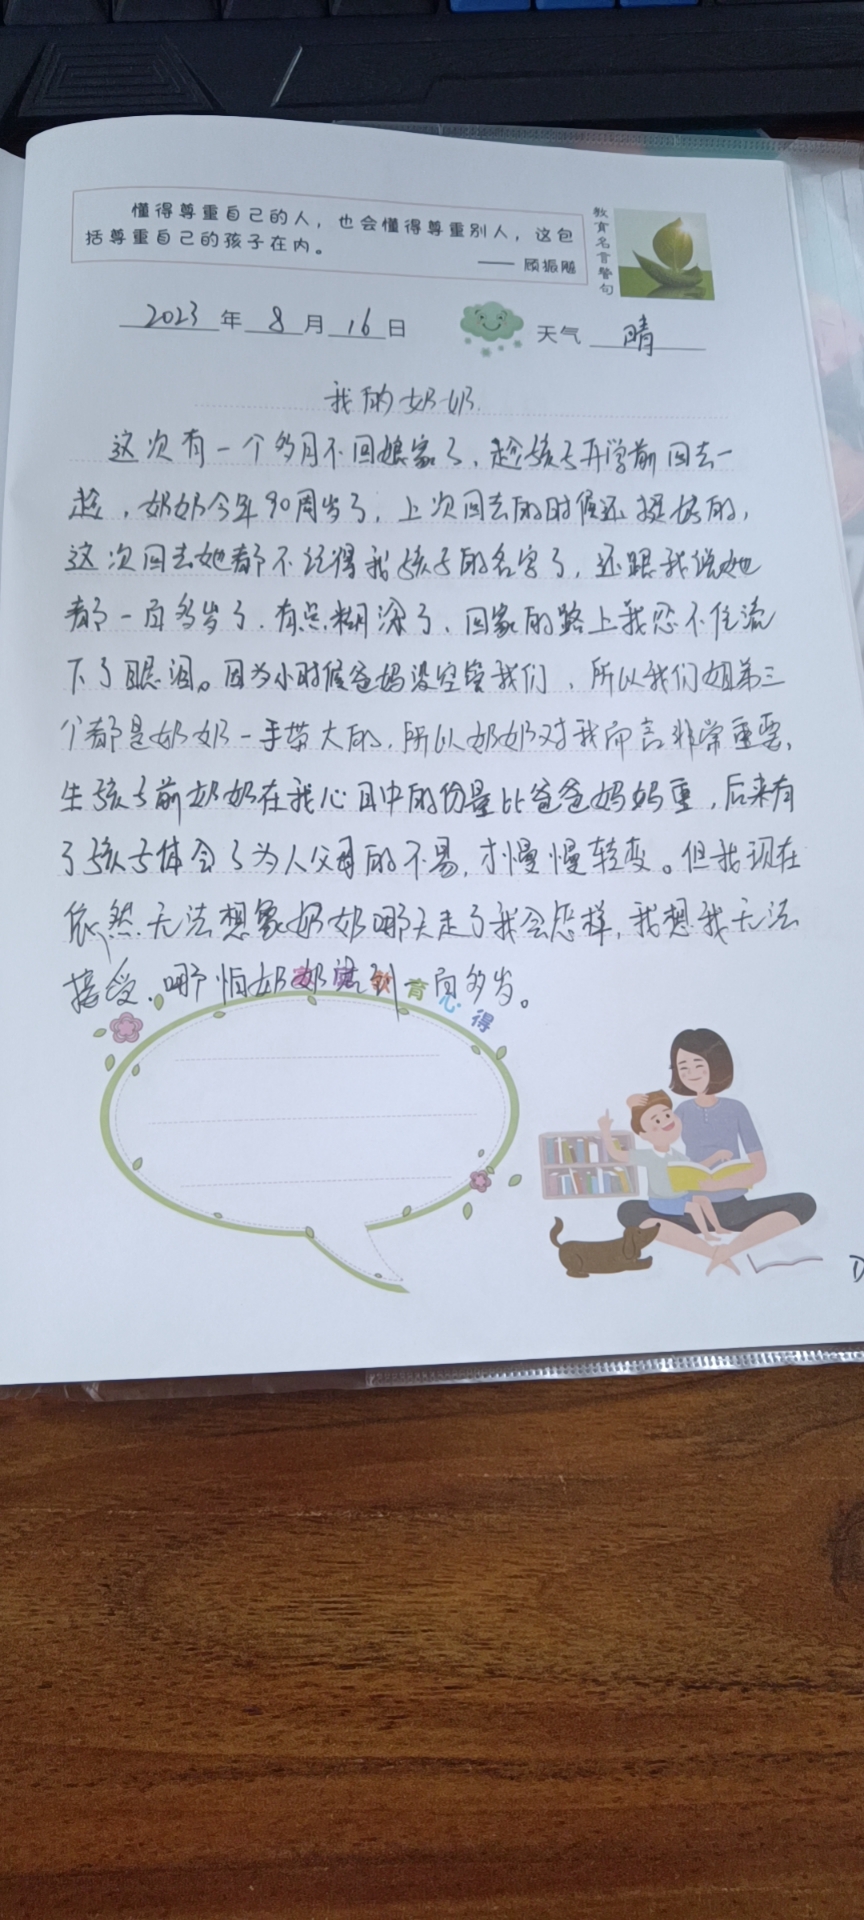 懂得尊重自己的人，也会懂得尊重别人，这包
括尊重自己的孩子在内。
—— 顾振飚
教育名言警句
2023年8月16日 天气 晴
我的奶奶
这次有一个多月不回娘家了，趁孩子开学前回去一
趟，奶奶今年90周岁了，上次回去的时候还挺好的，
这次回去她都不记得我孩子的名字了，还跟我说她
都一百多岁了．有点糊涂了、回家的路上我忍不住流
下了眼泪。因为小时候爸妈没空管我们，所以我们姐弟三
个都是奶奶一手带大的，所以奶奶对我而言非常重要，
生孩子前奶奶在我心目中的份量比爸爸妈妈重，后来有
了孩子体会了为人父母的不易，才慢慢转变。但我现在
依然无法想象奶奶哪天走了我会怎样，我想我无法
接受、哪怕奶奶活到一百多岁。
育心得